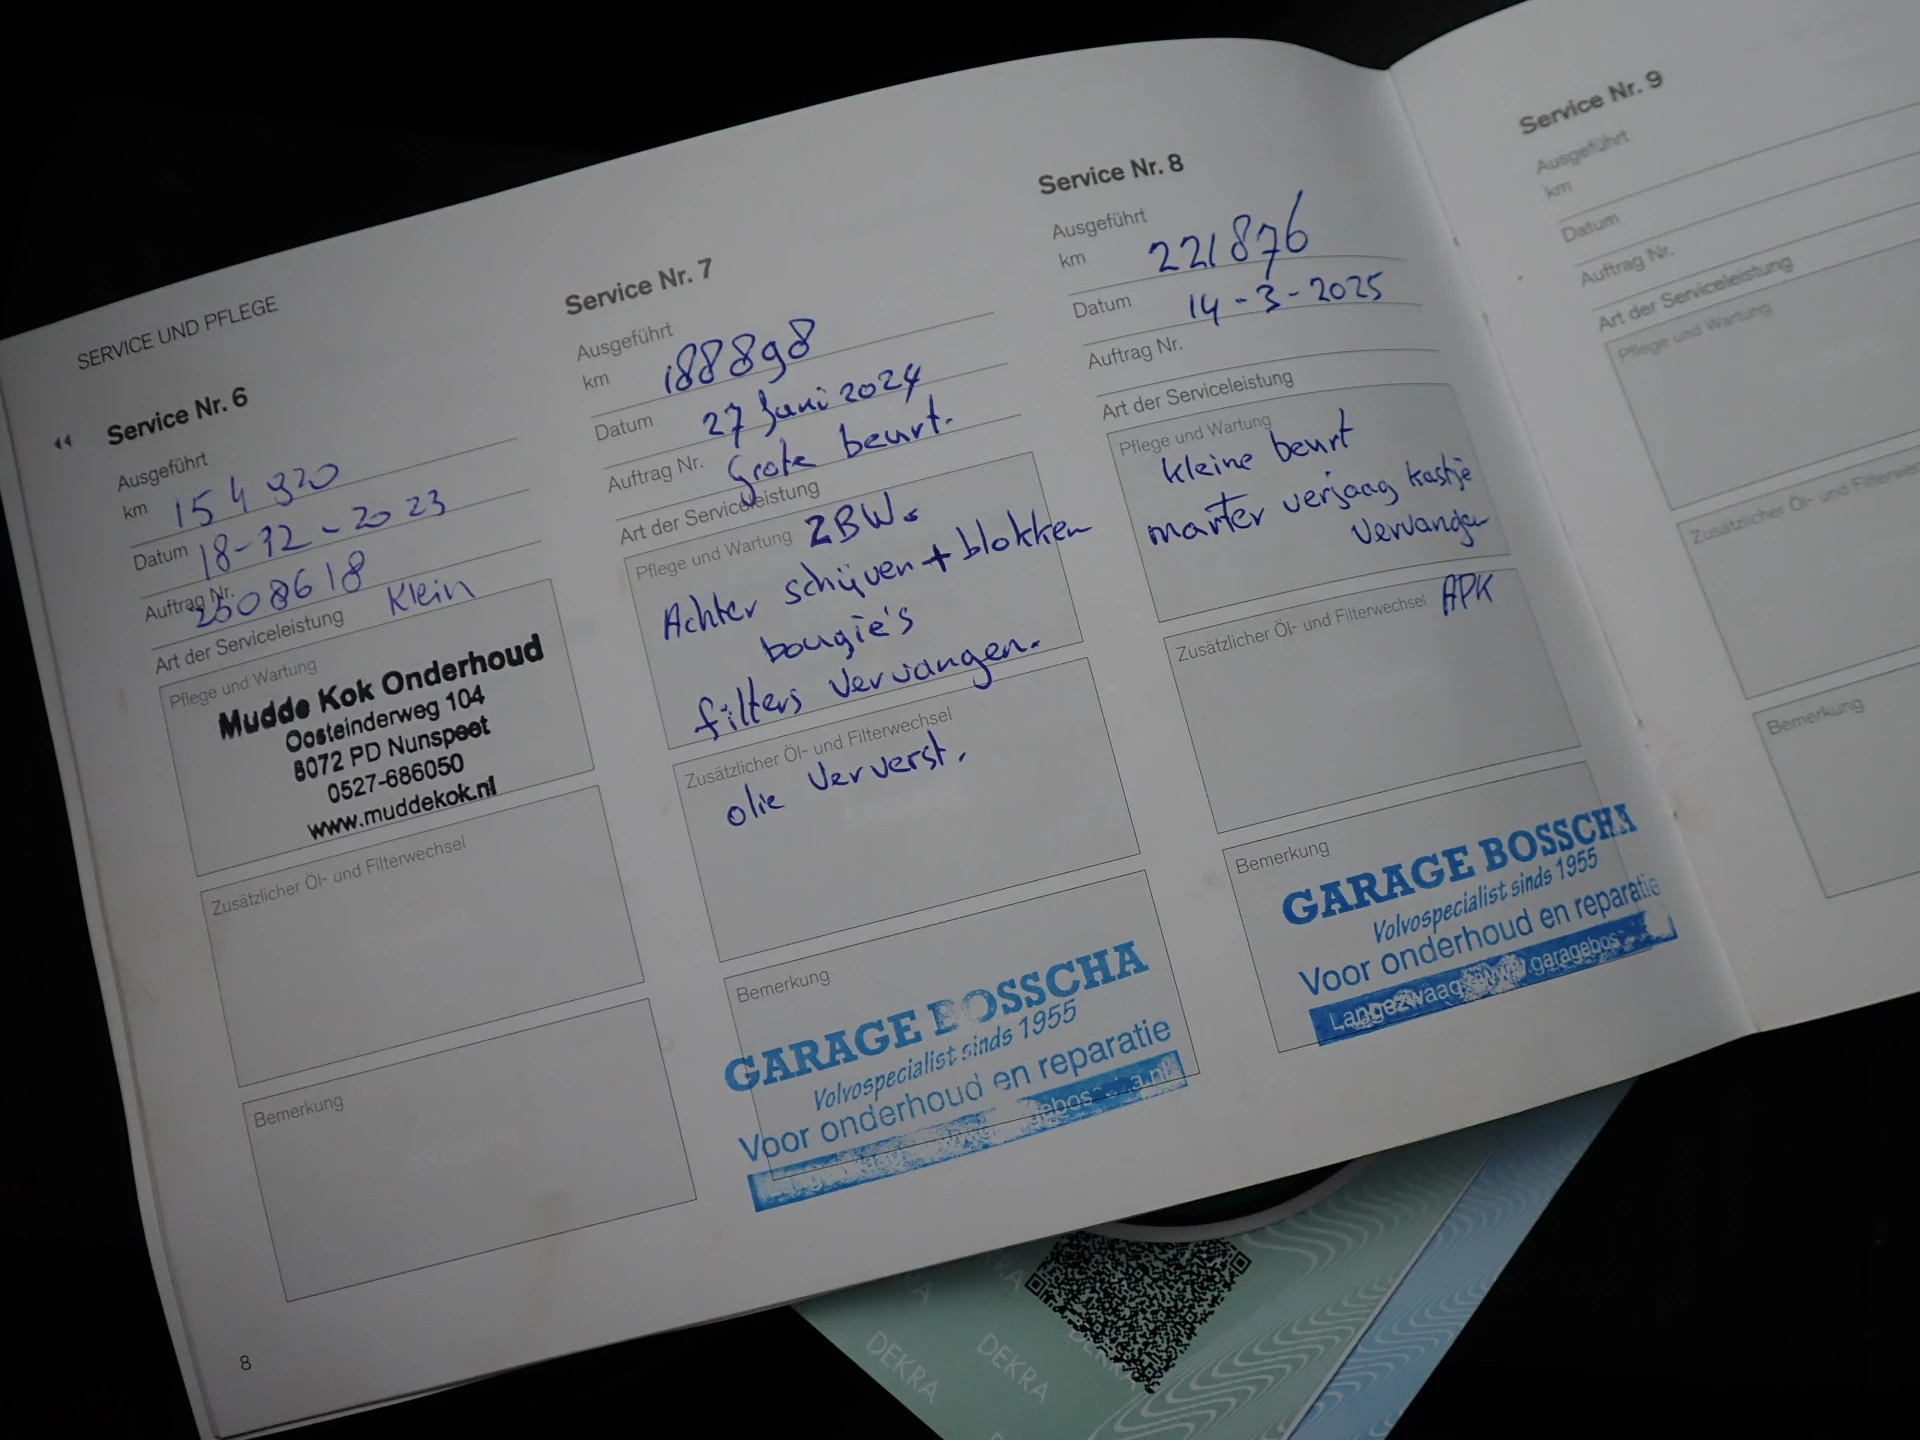 SERVICE UND PFLEGE
Service Nr. 6
Ausgeführt
km 154 920
Datum 18-12-2023
Auftrag Nr. 2508618
Art der Serviceleistung Klein
Pflege und Wartung
Mudde Kok Onderhoud
Oosteinderweg 104
8072 PD Nunspeet
0527-686050
www.muddekok.nl
Zusätzlicher Öl- und Filterwechsel
Bemerkung
8
Service Nr. 7
Ausgeführt
km 188898
Datum 27 Juni 2024
Auftrag Nr. Grote beurt.
Art der Serviceleistung
Pflege und Wartung ZBW.
Achter schijven + blokken
bougie's
filters vervangen.
Zusätzlicher Öl- und Filterwechsel
olie ververst.
Bemerkung
GARAGE BOSSCHA
Volvospecialist sinds 1955
Voor onderhoud en reparatie
Service Nr. 8
Ausgeführt
km 221876
Datum 14-3-2025
Auftrag Nr.
Art der Serviceleistung
Pflege und Wartung
kleine beurt
marter verjaag kastje
vervangen
Zusätzlicher Öl- und Filterwechsel APK
Bemerkung
GARAGE BOSSCHA
Volvospecialist sinds 1955
Voor onderhoud en reparatie
Langezwaag
Service Nr. 9
Ausgeführt
km
Datum
Auftrag Nr.
Art der Serviceleistung
Pflege und Wartung
Zusätzlicher Öl- und
Bemerkung
DEKRA
DEKRA